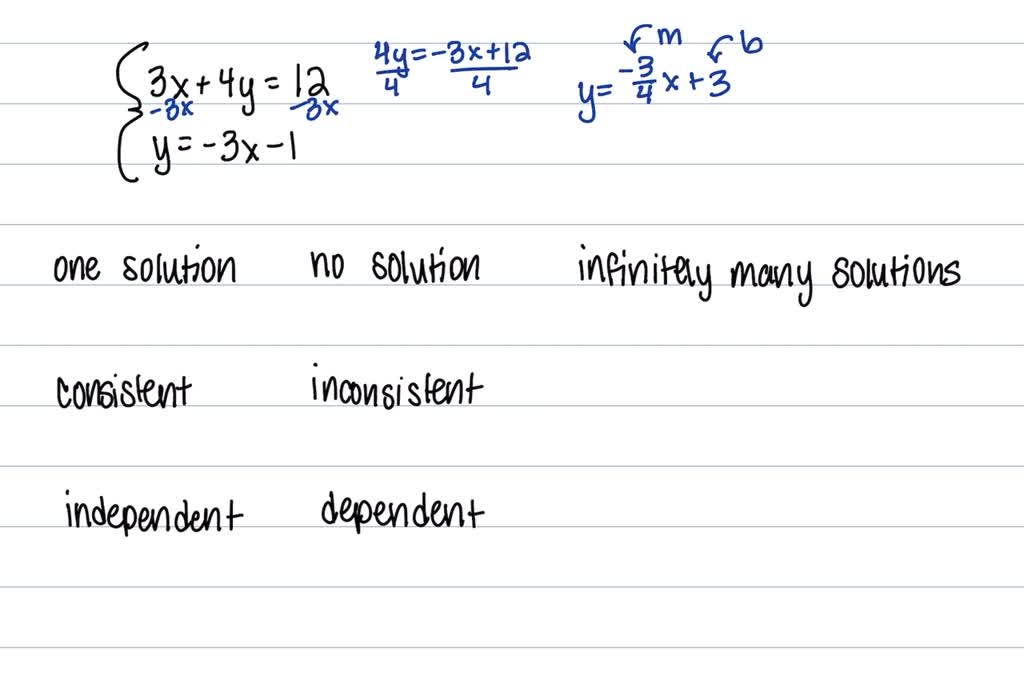 3x + 4y = 12   4y = -3x + 12   m   b
-3x   -3x   4   4   y = -3/4 x + 3
y = -3x - 1
one solution   no solution   infinitely many solutions
consistent   inconsistent
independent   dependent